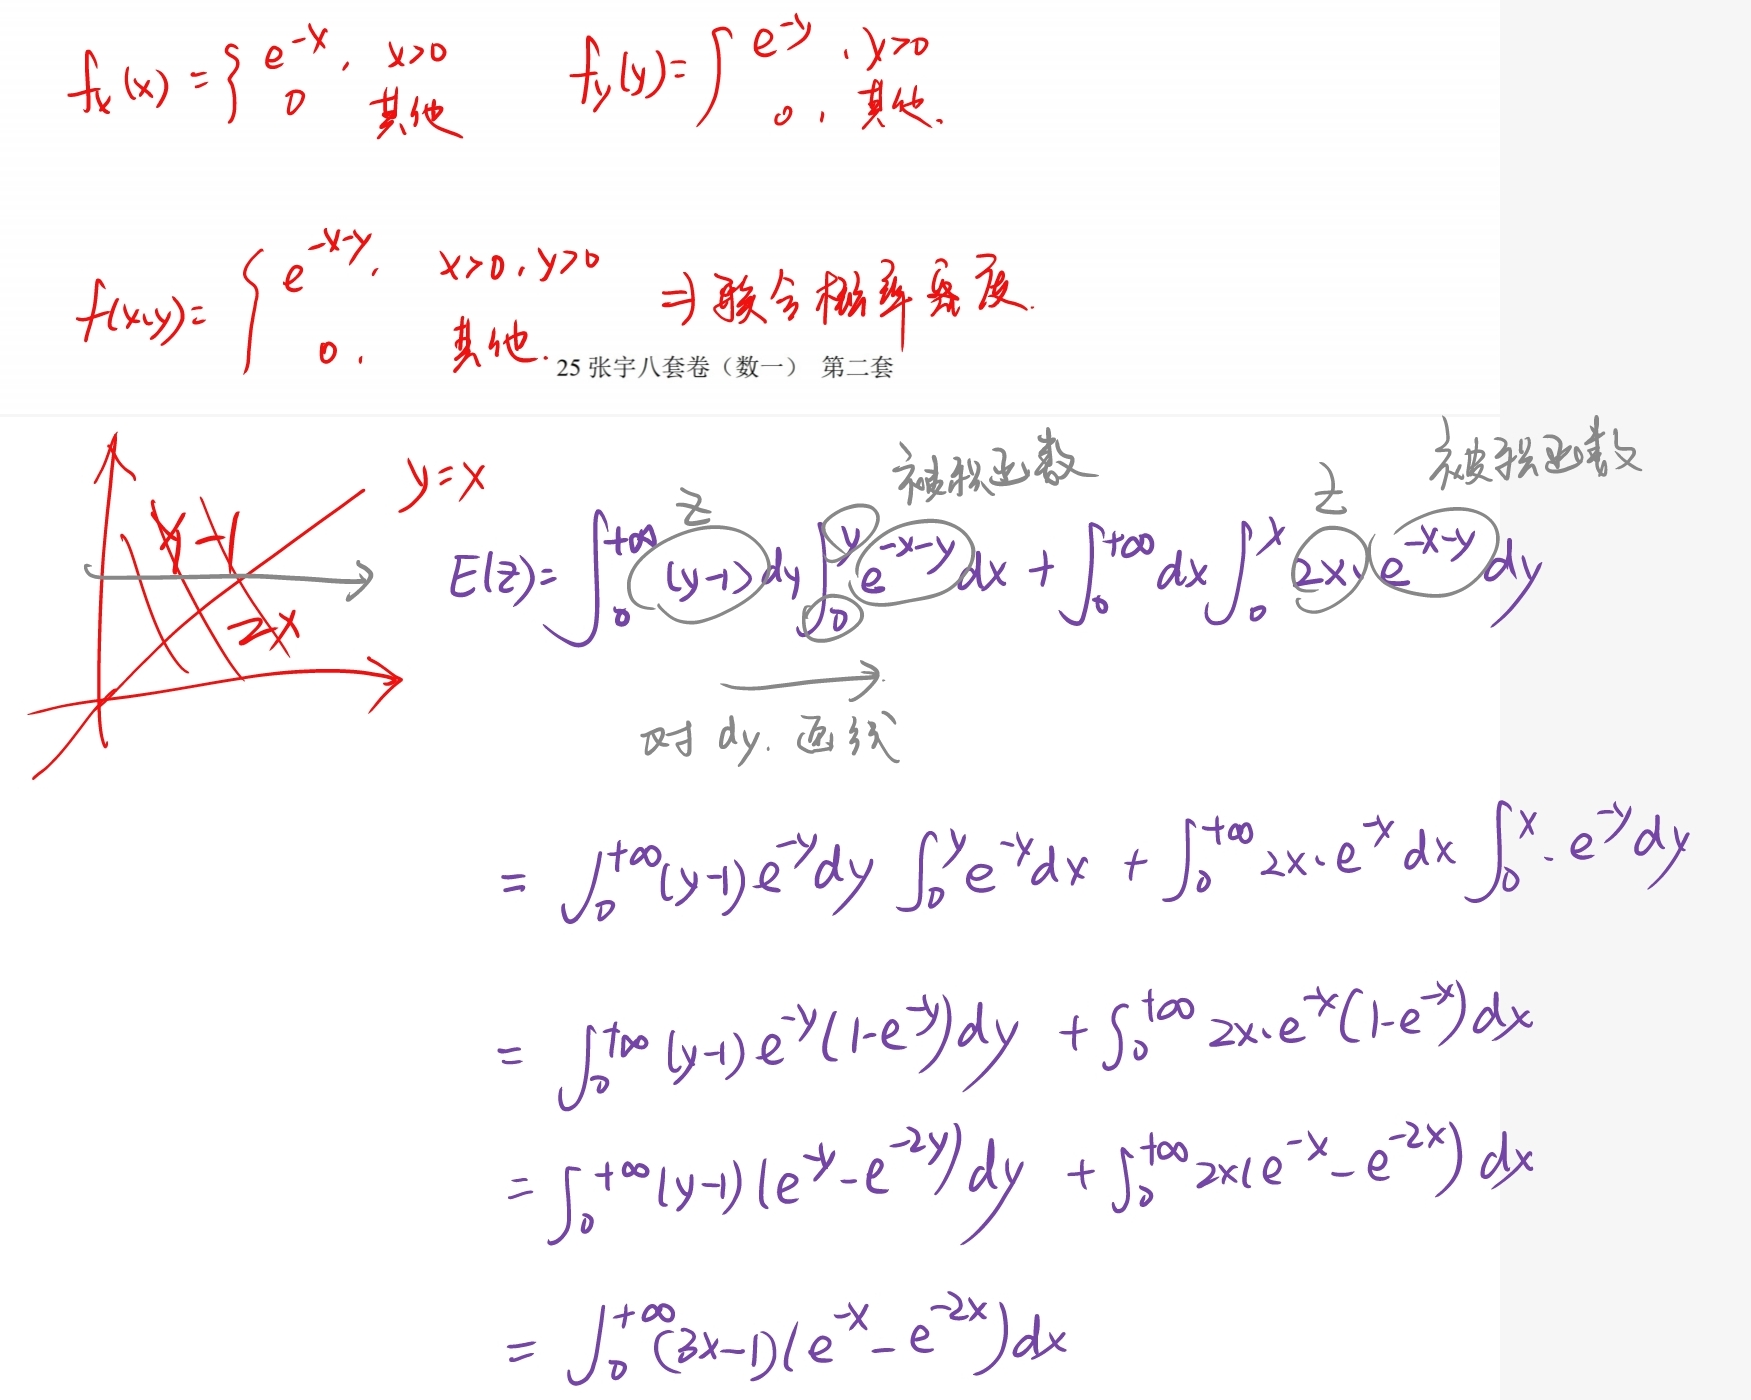 f_X(x) = { e^{-x}, x>0 f_Y(y) = { e^{-y}, y>0
0 其他 0, 其他.
f(x,y) = { e^{-x-y}, x>0, y>0 ⇒ 联合概率密度.
0, 其他.
25 张宇八套卷（数一） 第二套
y=x
y-1
2x
z 被积函数 z 被积函数
E(z) = ∫_0^{+∞} (y-1) dy ∫_0^y e^{-x-y} dx + ∫_0^{+∞} dx ∫_0^x 2x · e^{-x-y} dy
对 dy. 画线
= ∫_0^{+∞} (y-1) e^{-y} dy ∫_0^y e^{-x} dx + ∫_0^{+∞} 2x · e^{-x} dx ∫_0^x · e^{-y} dy
= ∫_0^{+∞} (y-1) e^{-y} (1-e^{-y}) dy + ∫_0^{+∞} 2x · e^{-x} (1-e^{-x}) dx
= ∫_0^{+∞} (y-1) (e^{-y} - e^{-2y}) dy + ∫_0^{+∞} 2x (e^{-x} - e^{-2x}) dx
= ∫_0^{+∞} (3x-1) (e^{-x} - e^{-2x}) dx